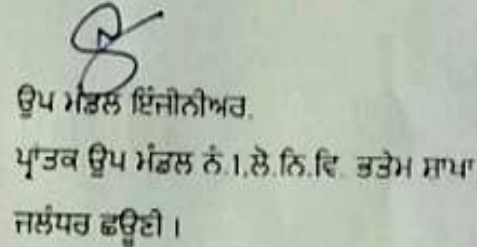 ਉਪ ਮੰਡਲ ਇੰਜੀਨੀਅਰ,
ਪ੍ਰਾਂਤਕ ਉਪ ਮੰਡਲ ਨੰ.1,ਲੋ.ਨਿ.ਵਿ. ਭਤੇਮ ਸਾਖਾ
ਜਲੰਧਰ ਛਾਉਣੀ ।